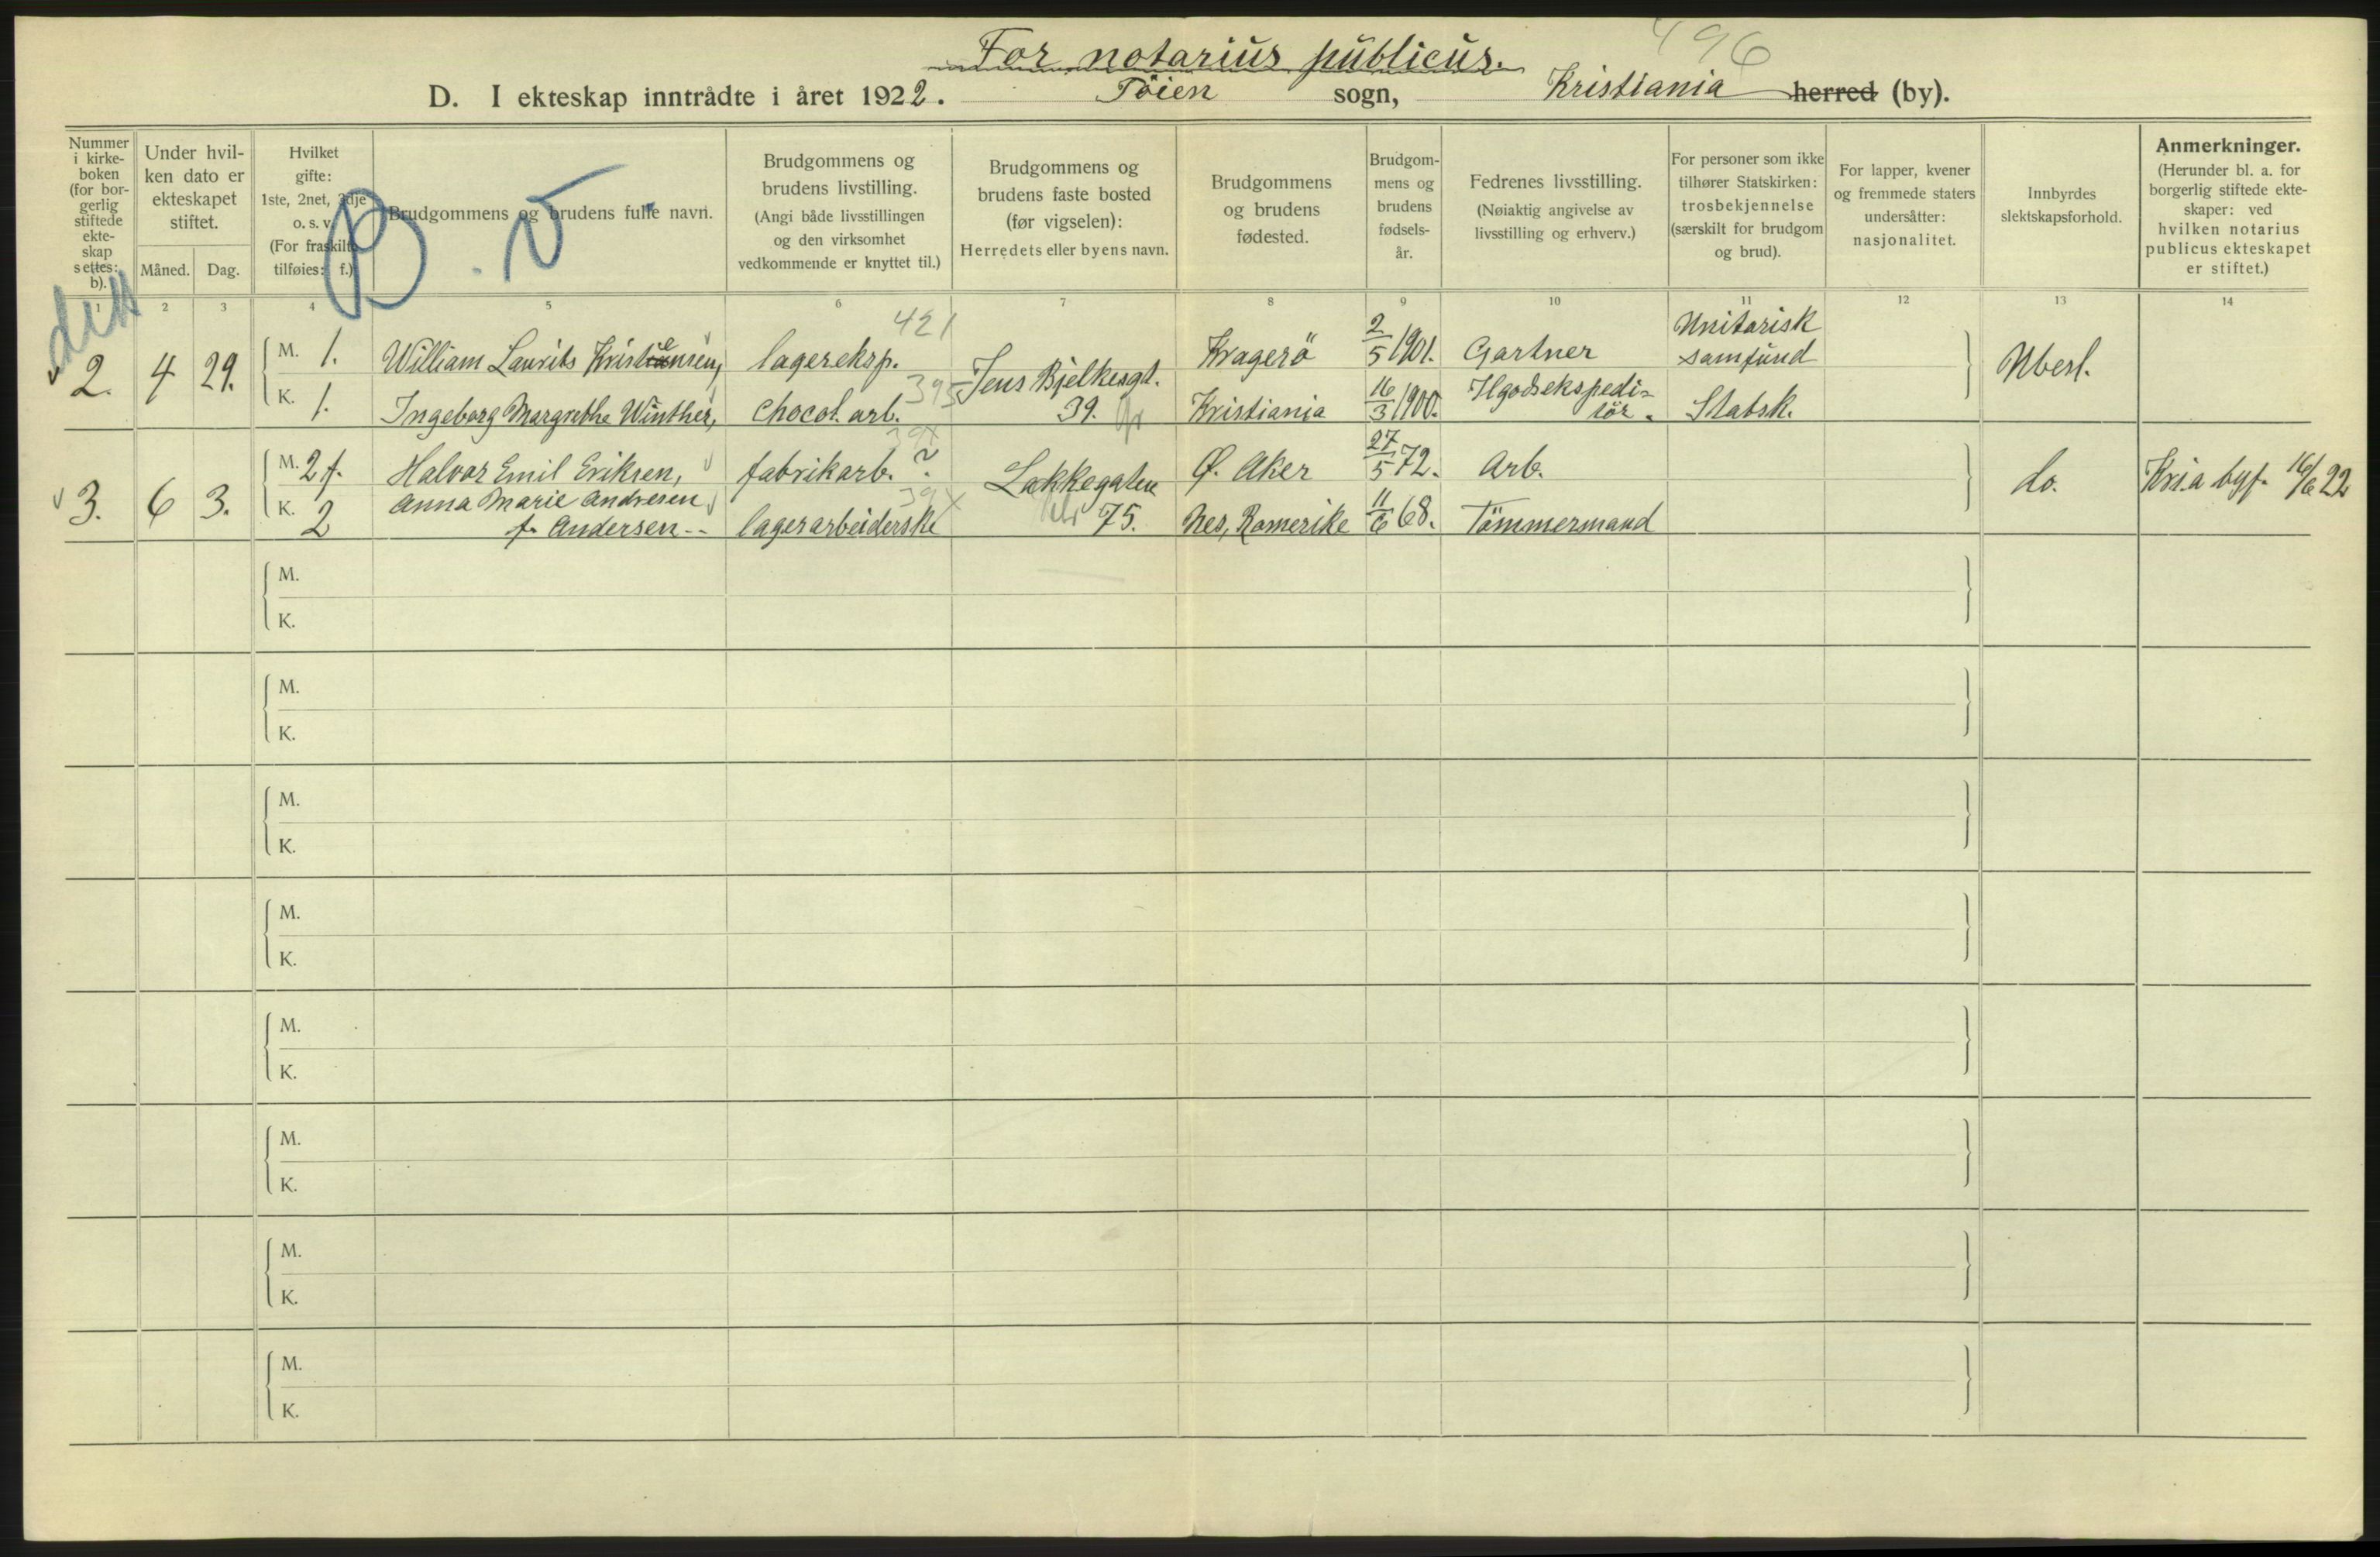 496
For notarius publicus.
D. I ekteskap inntrådte i året 1922. Töien sogn, Kristiania herred (by).
Nummer i kirkeboken (for borgerlig stiftede ekteskap settes: b).
Under hvilken dato er ekteskapet stiftet.
Måned. Dag.
Hvilket gifte: 1ste, 2net, 3dje o. s. v. (For fraskilte tilføies: f.)
Brudgommens og brudens fulle navn.
Brudgommens og brudens livstilling. (Angi både livsstillingen og den virksomhet vedkommende er knyttet til.)
Brudgommens og brudens faste bosted (før vigselen): Herredets eller byens navn.
Brudgommens og brudens fødested.
Brudgommens og brudens fødselsår.
Fedrenes livsstilling. (Nøiaktig angivelse av livsstilling og erhverv.)
For personer som ikke tilhører Statskirken: trosbekjennelse (særskilt for brudgom og brud).
For lapper, kvener og fremmede staters undersåtter: nasjonalitet.
Innbyrdes slektskapsforhold.
Anmerkninger. (Herunder bl. a. for borgerlig stiftede ekteskaper: ved hvilken notarius publicus ekteskapet er stiftet.)
1 2 3 4 5 6 7 8 9 10 11 12 13 14
421
2. 4 29. M. 1. William Laurits Kristiensen, lagereksp. Jens Bjelkesgt. Kragerö 2/5 1901. Gartner Unitarisk samfund Ubesl.
395
K. 1. Ingeborg Margrethe Winther, Chocol. arb. 39. Kristiania 16/3 1900. Ilgodsekspeditör. Statsk.
3. 6 3. M. 2 f. Halvor Emil Eriksen, fabrikarb. ? Lakkegaten Ø. Aker 27/5 72. Arb. do. Kria byf. 16/6 22
K. 2 Anna Marie Andresen
f. Andersen -- lagerarbeiderske 75. Nes, Romerike 11/6 68. Tömmermand
M.
K.
M.
K.
M.
K.
M.
K.
M.
K.
M.
K.
M.
K.
M.
K.